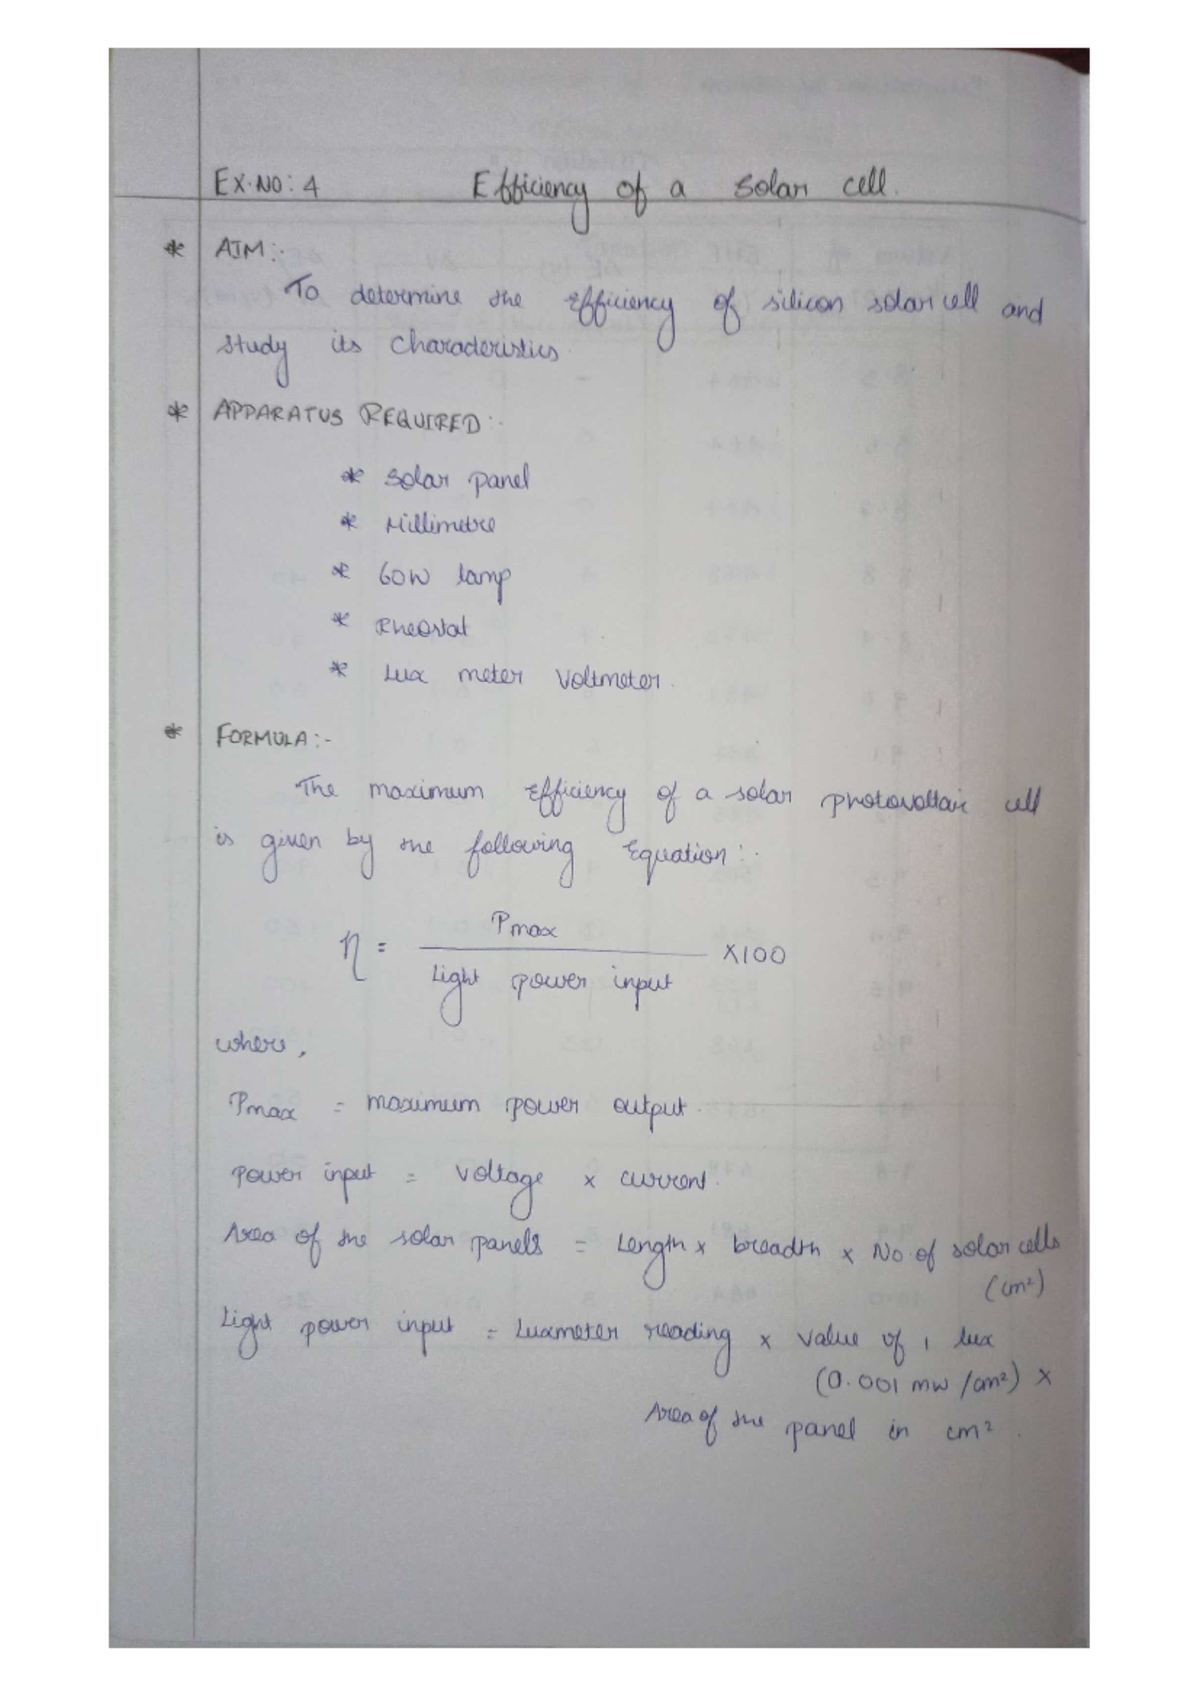 EX.NO: 4 Efficiency of a solar cell.
* AIM:-
To determine the Efficiency of silicon solar cell and
study its characteristics
* APPARATUS REQUIRED:-
* Solar panel
* Millimetre
* 60W lamp
* Rheostat
* Lux meter Voltmeter.
* FORMULA:-
The maximum Efficiency of a solar photovoltaic cell
is given by the following Equation:-
η = Pmax / Light power input ×100
where,
Pmax = maximum power output.
Power input = Voltage × current.
Area of the solar panels = Length × breadth × No of solar cells
(cm²)
Light power input = Luxmeter reading × value of 1 lux
(0.001 mw/cm²) ×
Area of the panel in cm².